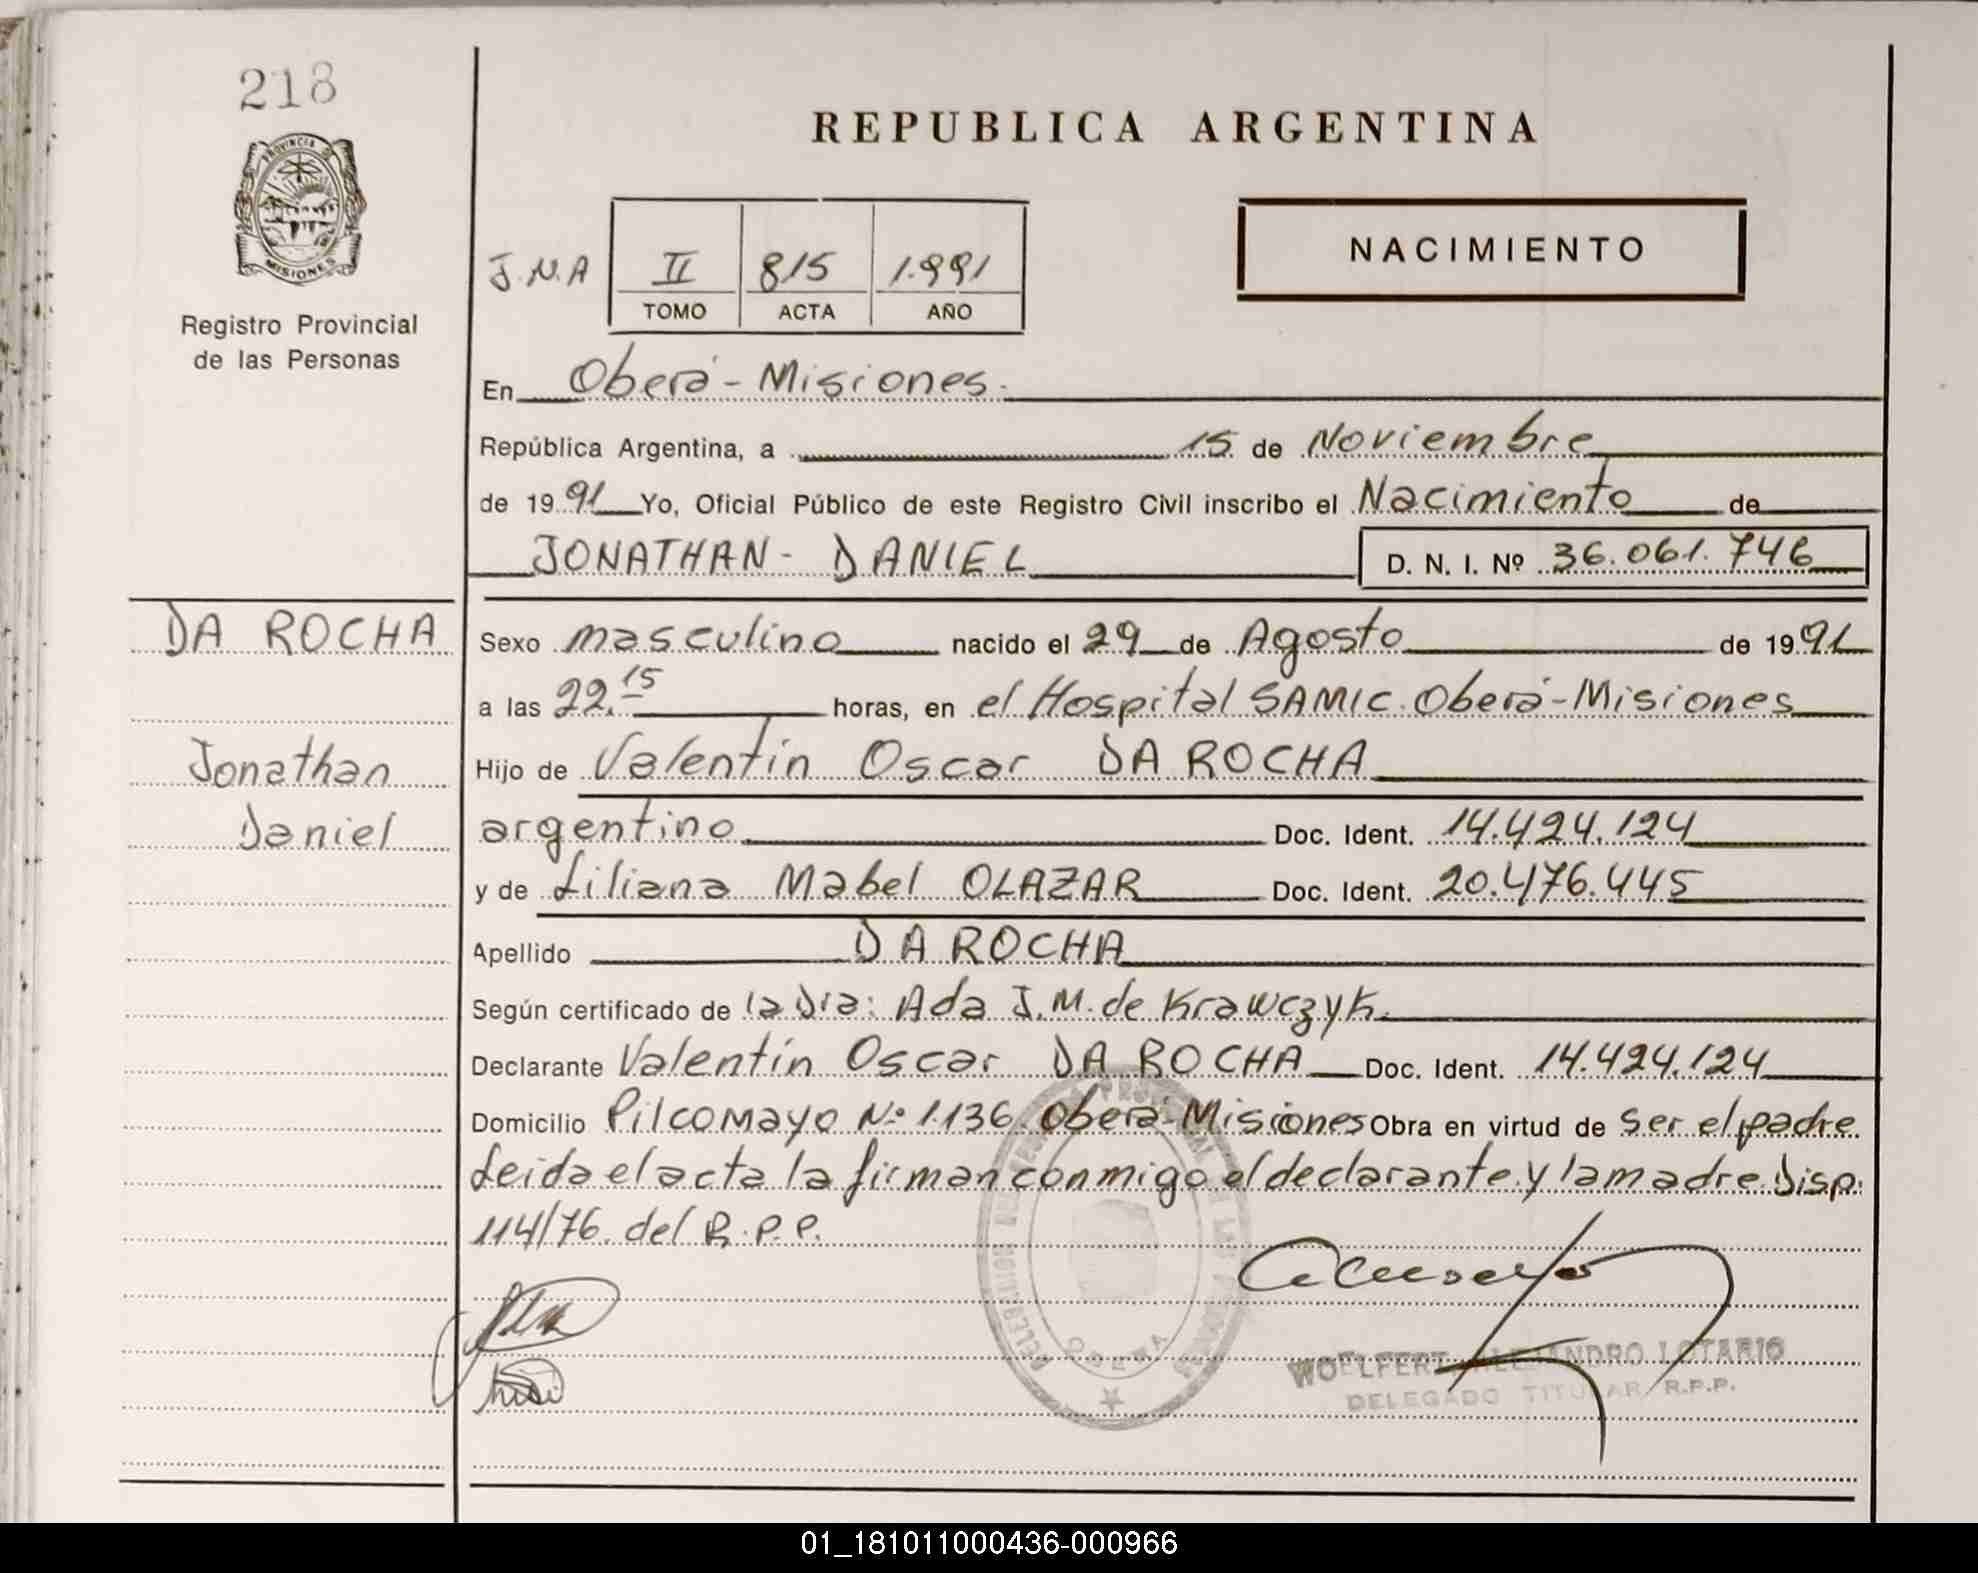 218
PROVINCIA DE
MISIONES
Registro Provincial
de las Personas
REPUBLICA ARGENTINA
NACIMIENTO
J.N.A II 815 1.991
TOMO ACTA AÑO
En Oberá - Misiones.
República Argentina, a 15 de Noviembre
de 19 91 Yo, Oficial Público de este Registro Civil inscribo el Nacimiento de
JONATHAN - DANIEL D. N. I. Nº 36.061.746
DA ROCHA
Jonathan
Daniel
Sexo masculino nacido el 29 de Agosto de 19 91
a las 22.15 horas, en el Hospital SAMIC. Oberá - Misiones
Hijo de Valentín Oscar DA ROCHA
argentino Doc. Ident. 14.424.124
y de Liliana Mabel OLAZAR Doc. Ident. 20.476.445
Apellido DA ROCHA
Según certificado de la Dra: Ada J. M. de Krawczyk.
Declarante Valentín Oscar DA ROCHA Doc. Ident. 14.424.124
Domicilio Pilcomayo Nº 1.136. Oberá - Misiones Obra en virtud de ser el padre.
Leida el acta la firman conmigo el declarante y la madre. Disp:
114/76. del R.P.P.
WOELFERT ALEJANDRO LOTARIO
DELEGADO TITULAR R.P.P.
OBERA
01_181011000436-000966